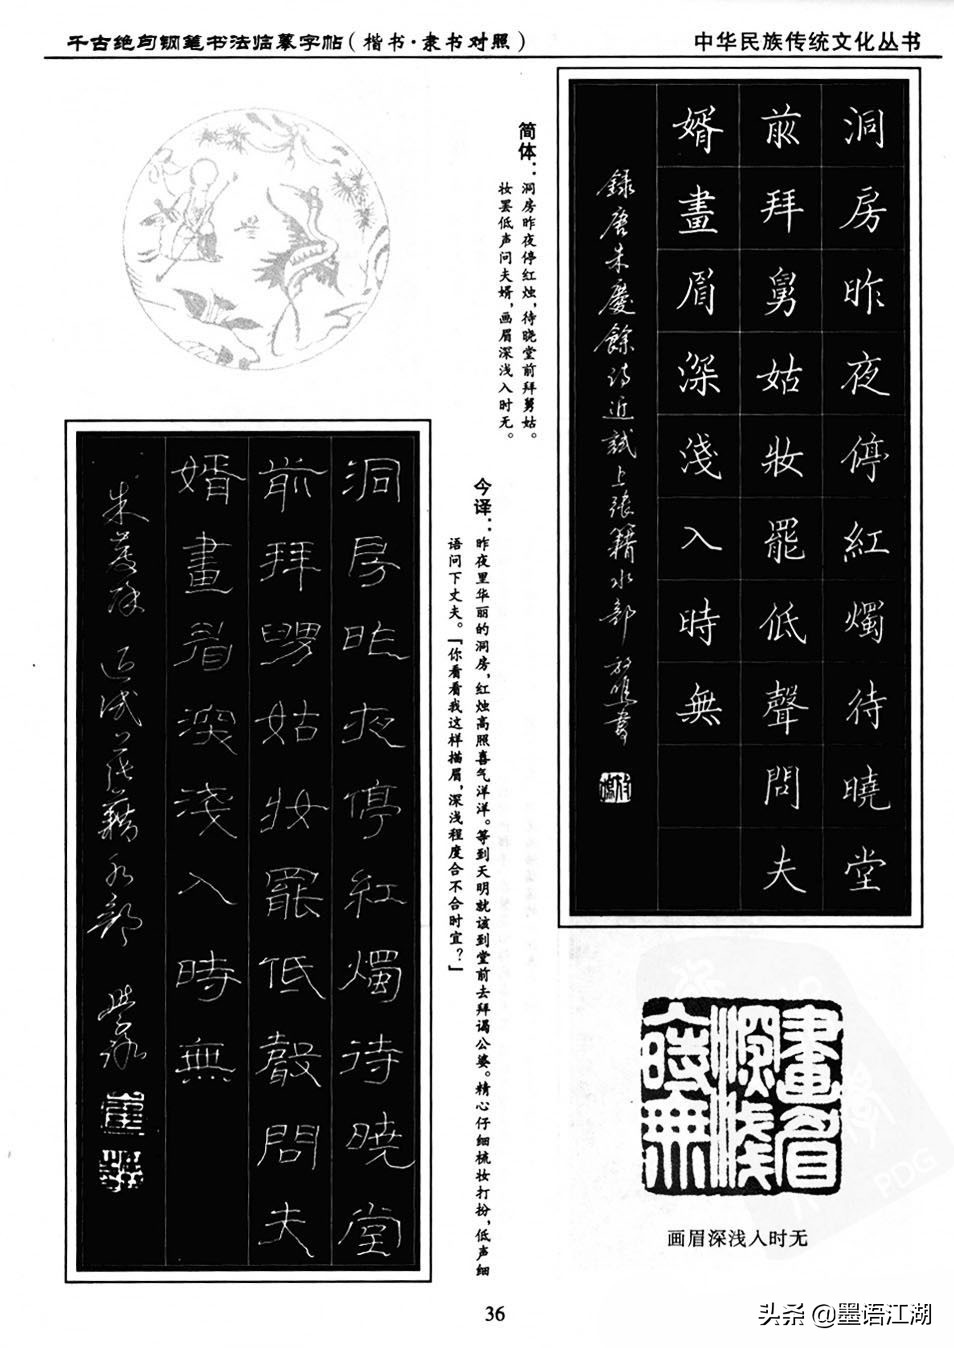 千古绝句钢笔书法临摹字帖(楷书·隶书对照)
中华民族传统文化丛书
洞房昨夜停紅燭待曉堂
前拜舅姑妝罷低聲問夫
婿畫眉深淺入時無
錄唐朱慶餘詩近試上張籍水部
简体：洞房昨夜停红烛，待晓堂前拜舅姑。
妆罢低声问夫婿，画眉深浅入时无。
今译：昨夜里华丽的洞房，红烛高照喜气洋洋。等到天明就该到堂前去拜谒公婆。精心仔细梳妆打扮，低声细
语问下丈夫。「你看看我这样描眉，深浅程度合不合时宜？」
洞房昨夜停紅燭待曉堂
前拜舅姑妝罷低聲問夫
婿畫眉深淺入時無
朱慶餘近試上張籍水部
畫眉
深淺
入時無
画眉深浅入时无
36
头条 @墨语江湖
PDG